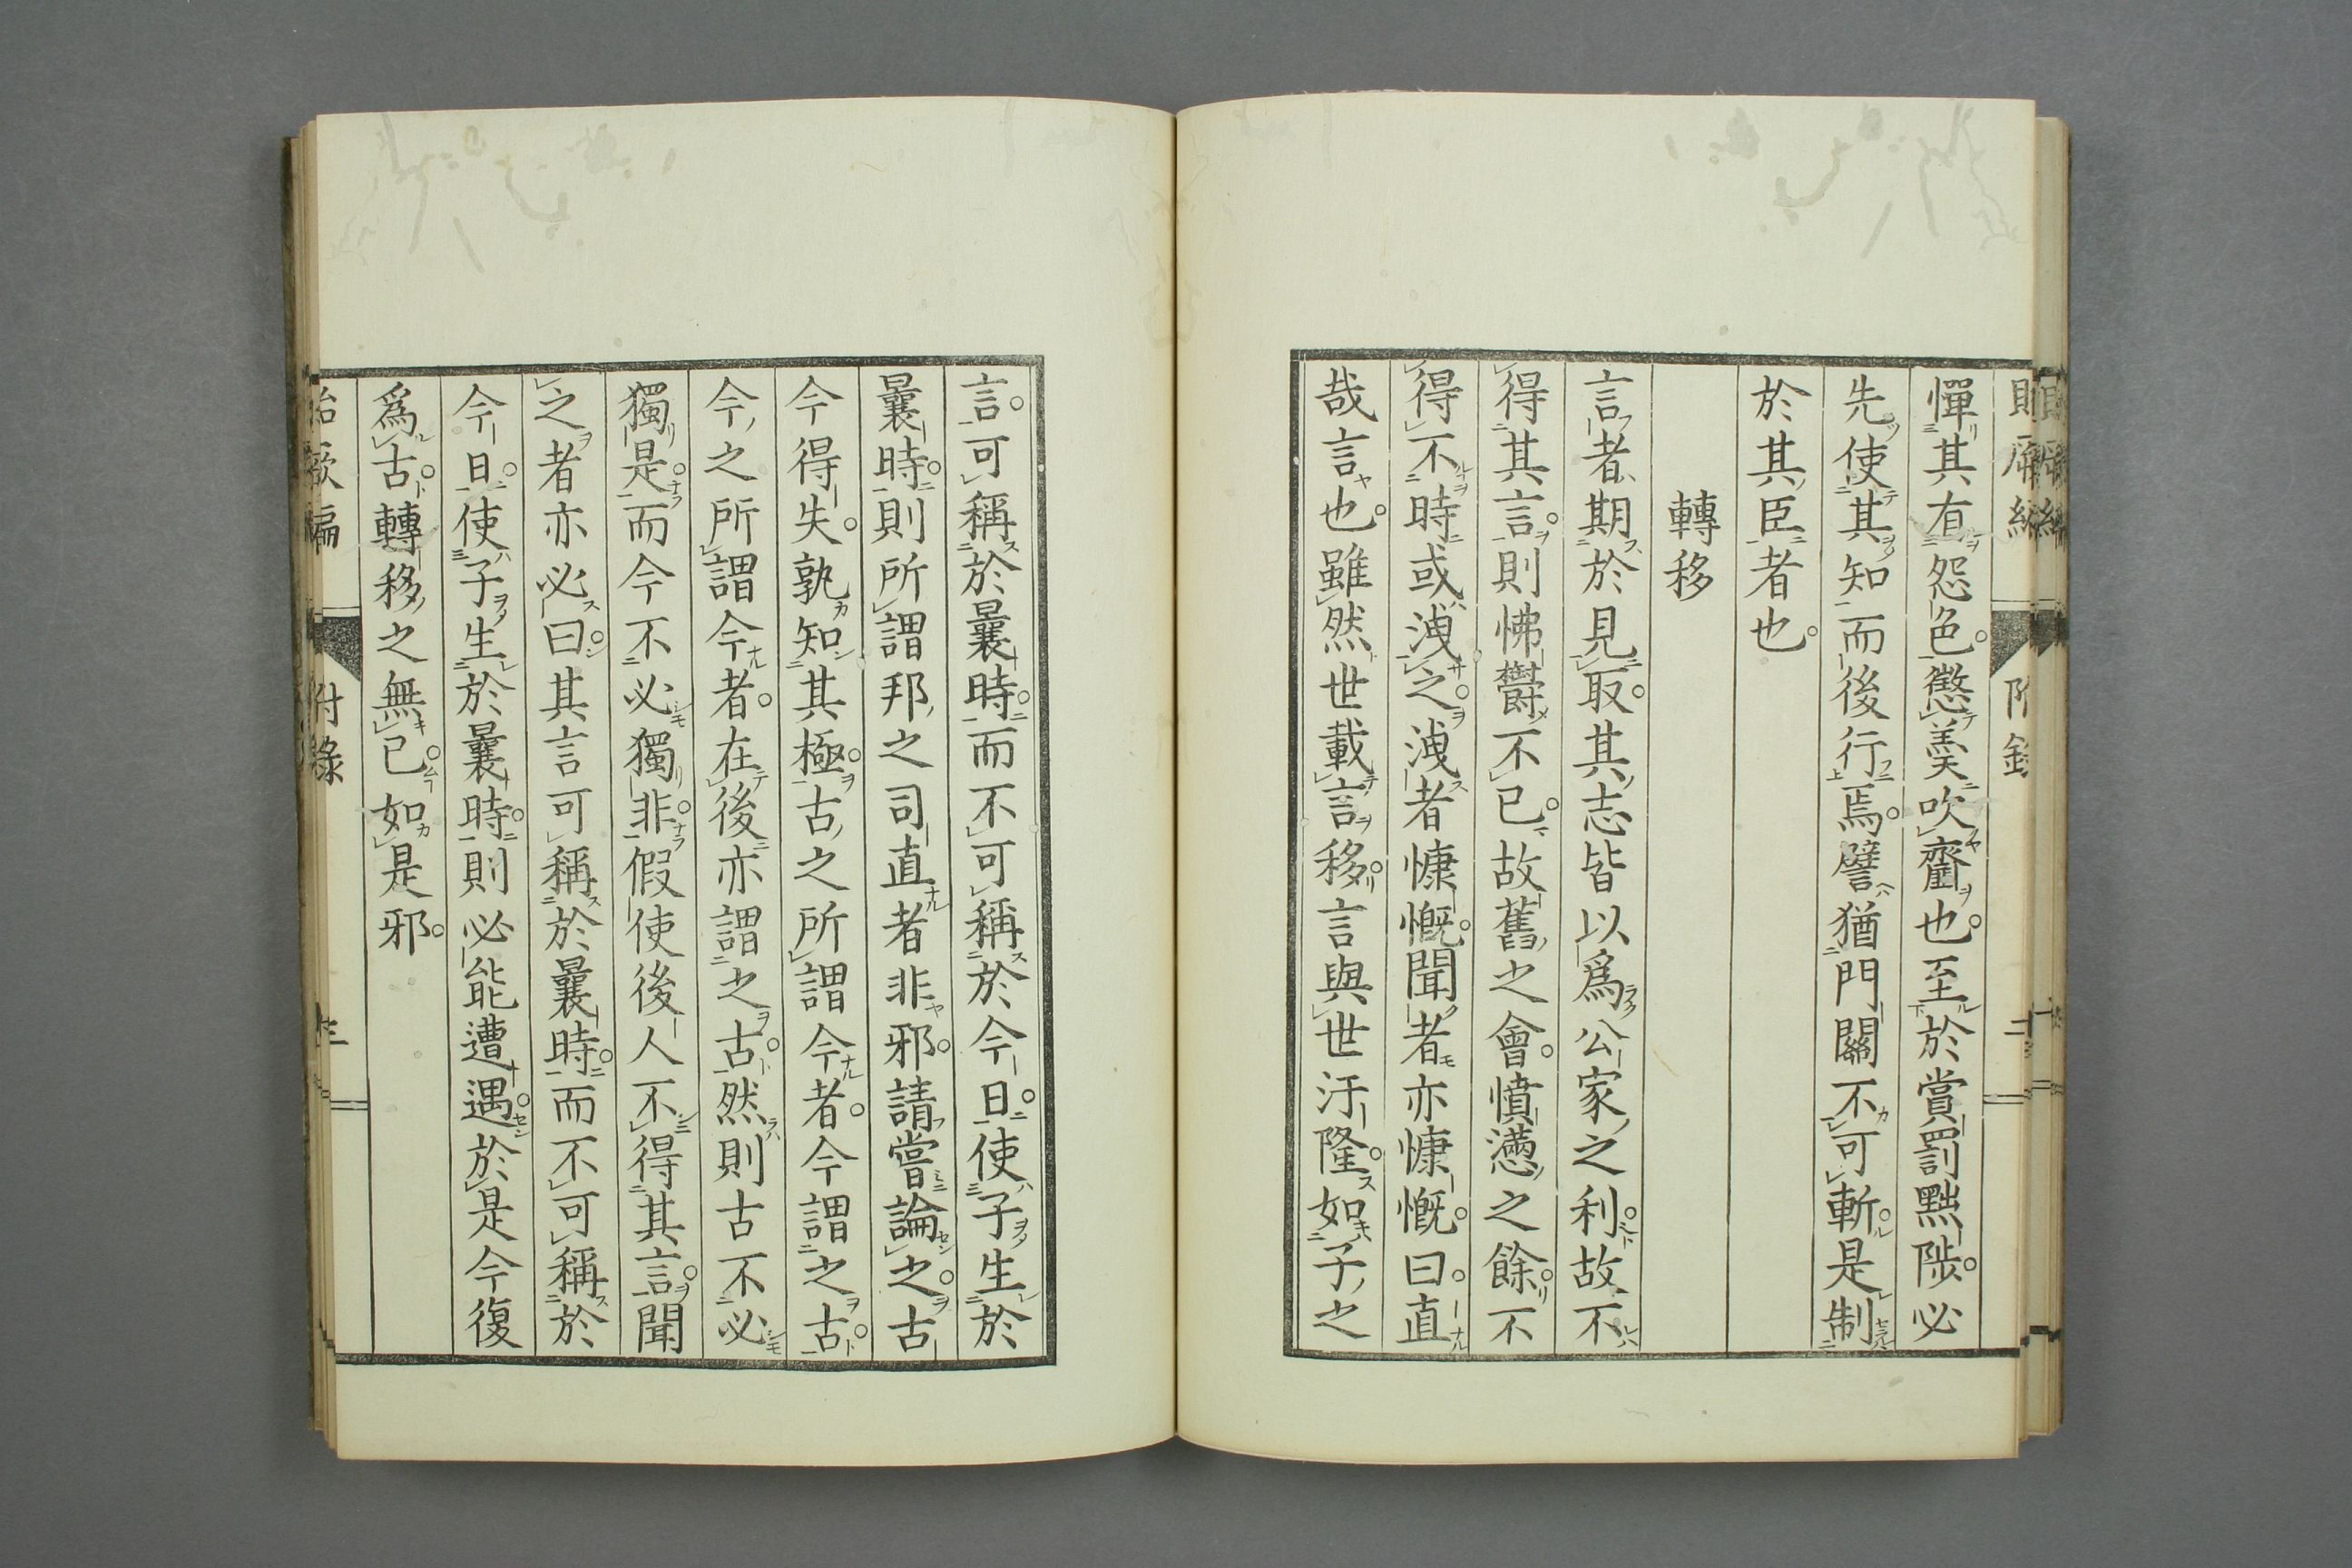 憚其有怨色懲羹吹齏也至於賞罰黜陟必
先使其知而後行焉譬猶門關不可斬是制
於其臣者也
轉移
言者期於見取其志皆以爲公家之利故不
得其言則怫鬱不已故舊之會憤懣之餘不
得不時或洩之洩者慷慨聞者亦慷慨曰直
哉言也雖然世載言移言與世汙隆如子之
言可稱於曩時而不可稱於今日使子生於
曩時則所謂邦之司直者非邪請嘗論之古
今得失孰知其極古之所謂今者今謂之古
今之所謂今者在後亦謂之古然則古不必
獨是而今不必獨非假使後人不得其言聞
之者亦必曰其言可稱於曩時而不可稱於
今日使子生於曩時則必能遭遇於是今復
爲古轉移之無已如是邪
附錄